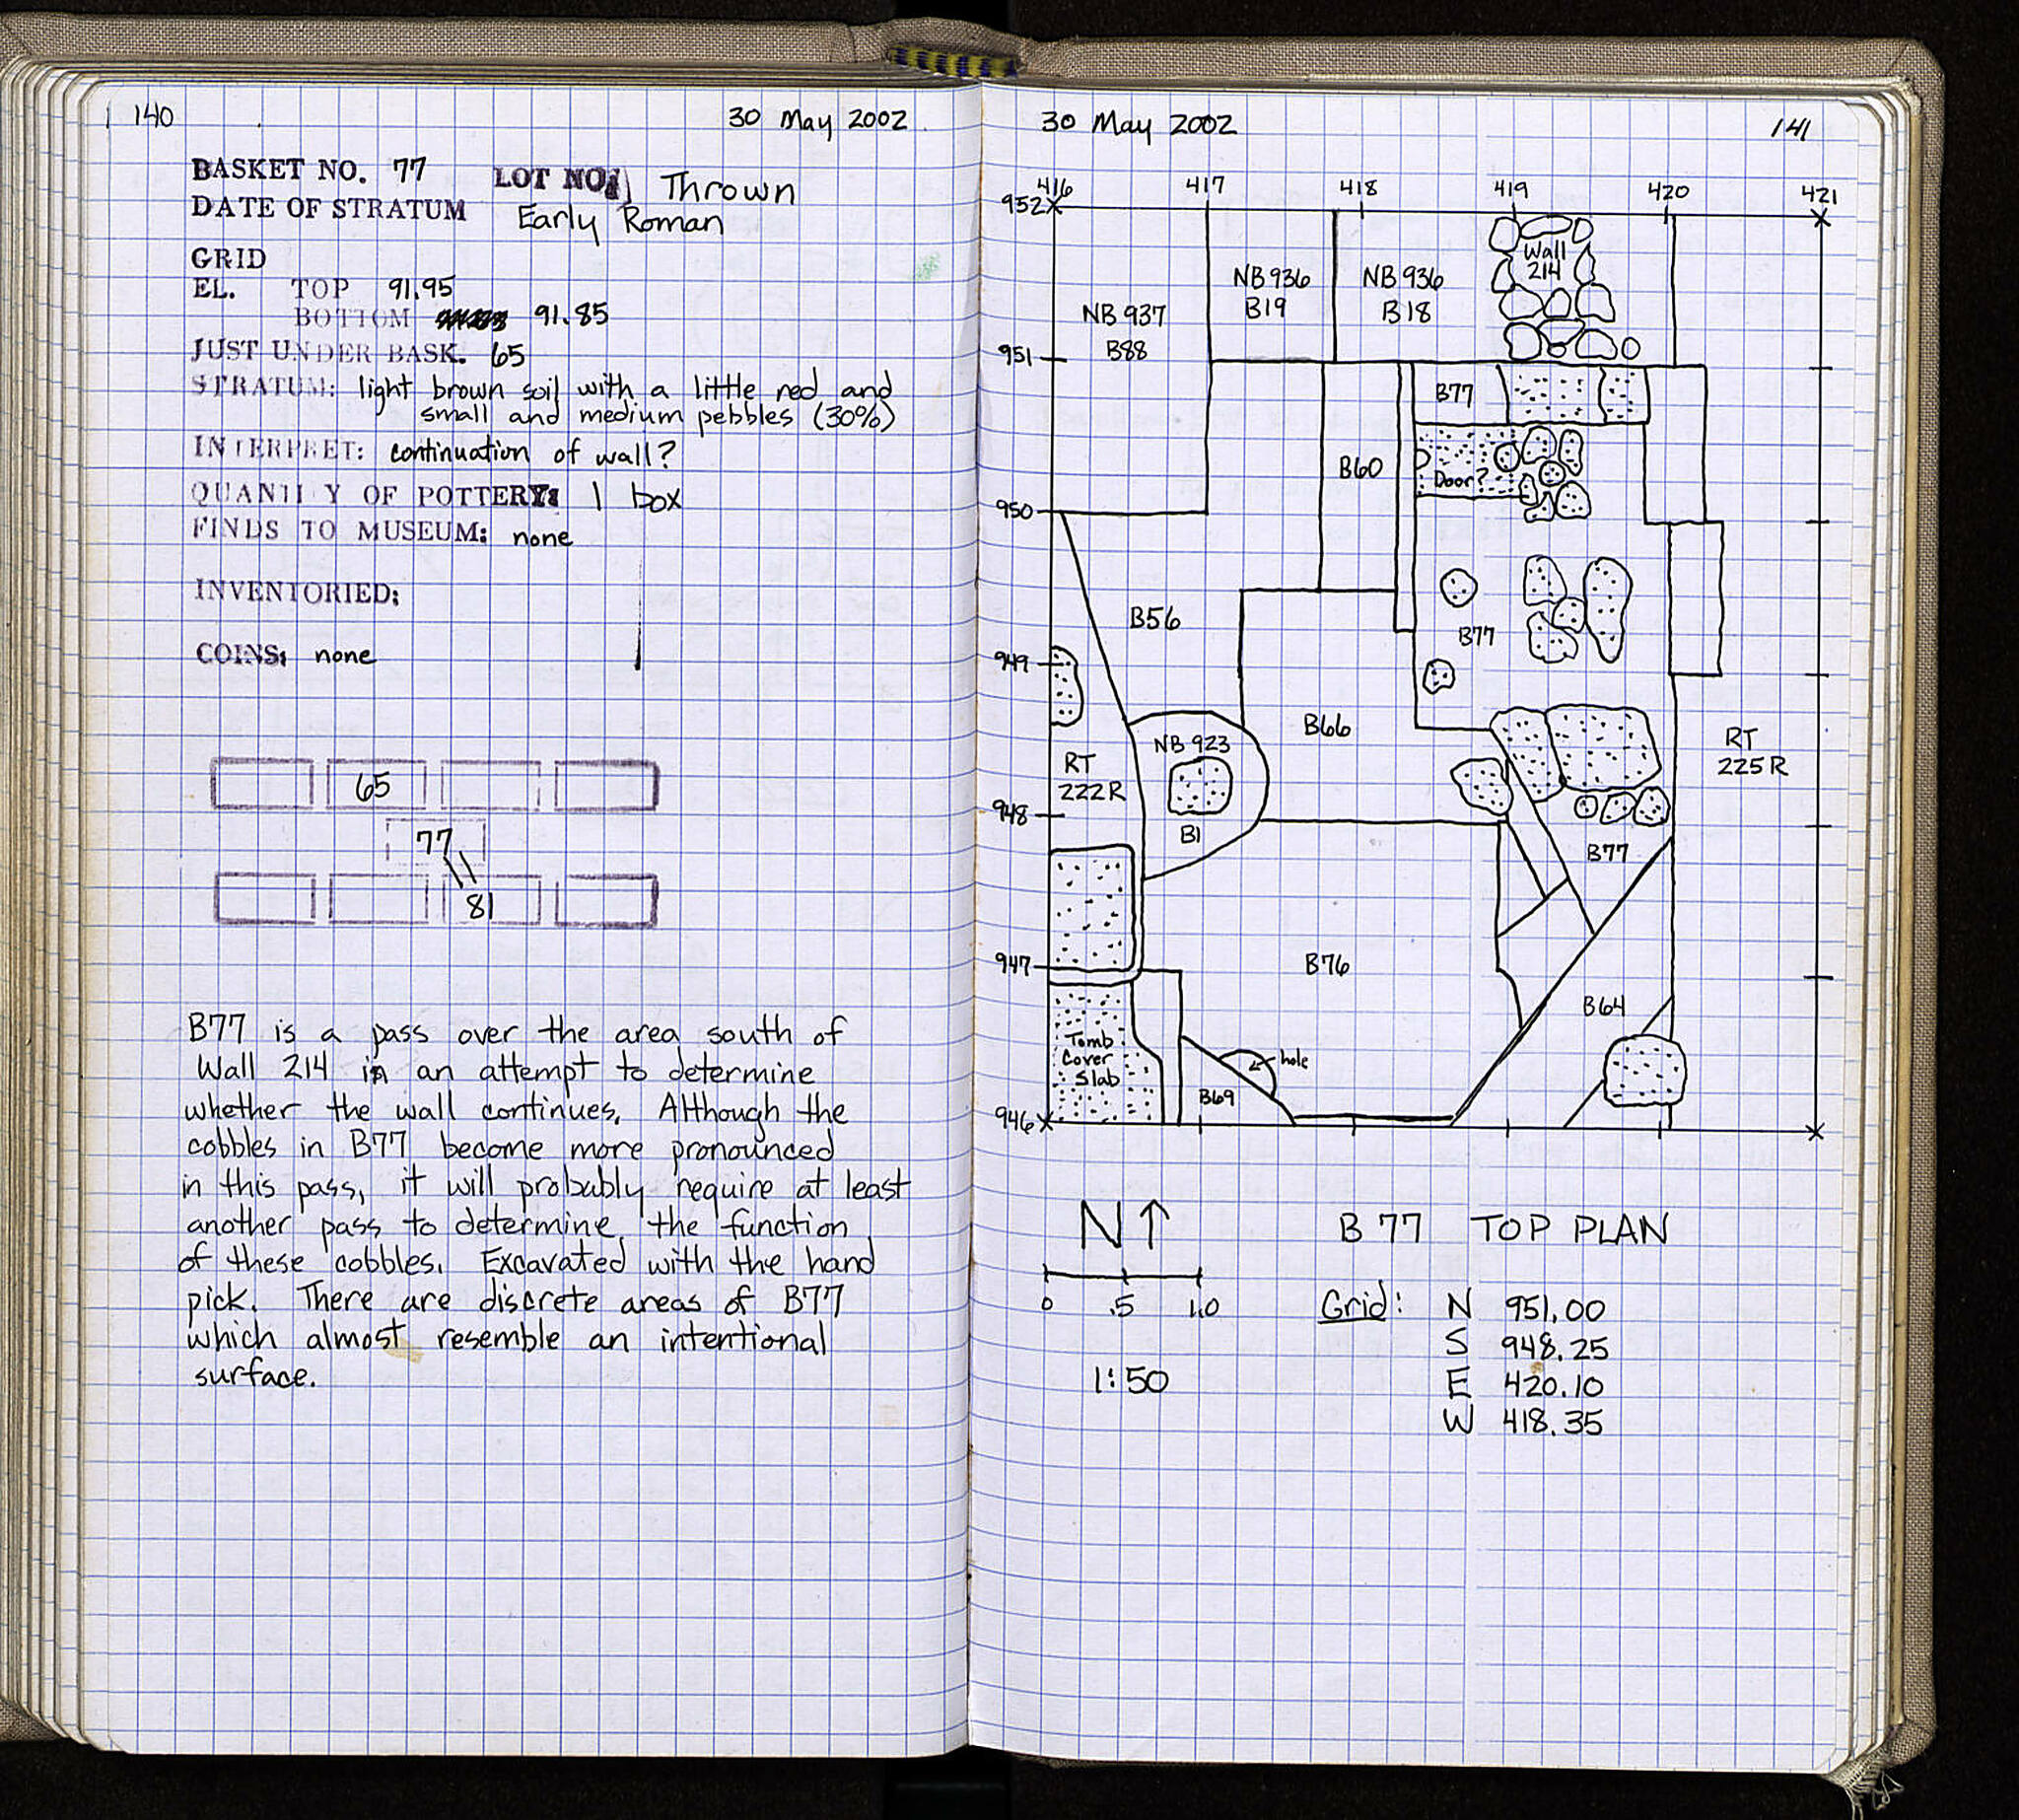 140
30 May 2002
BASKET NO. 77 LOT NO. Thrown
DATE OF STRATUM Early Roman
GRID
EL. TOP 91.95
BOTTOM 91.85
JUST UNDER BASK. 65
STRATUM: light brown soil with a little red and
small and medium pebbles (30%)
INTERPRET: continuation of wall?
QUANTITY OF POTTERY: 1 box
FINDS TO MUSEUM: none
INVENTORIED:
COINS: none
65
77
81
B77 is a pass over the area south of
Wall 214 in an attempt to determine
whether the wall continues. Although the
cobbles in B77 become more pronounced
in this pass, it will probably require at least
another pass to determine the function
of these cobbles. Excavated with the hand
pick. There are discrete areas of B77
which almost resemble an intentional
surface.
30 May 2002
141
416 417 418 419 420 421
952
Wall
214
NB 936
B19
NB 936
B18
NB 937
B88
951
B77
B60
Door?
950
B56
B77
949
B66
NB 923
RT
222R
RT
225R
948
B1
B77
947
B76
B64
Tomb
Cover
Slab
hole
B69
946
N↑
B 77 TOP PLAN
0 .5 1.0
Grid: N 951.00
S 948.25
1:50
E 420.10
W 418.35